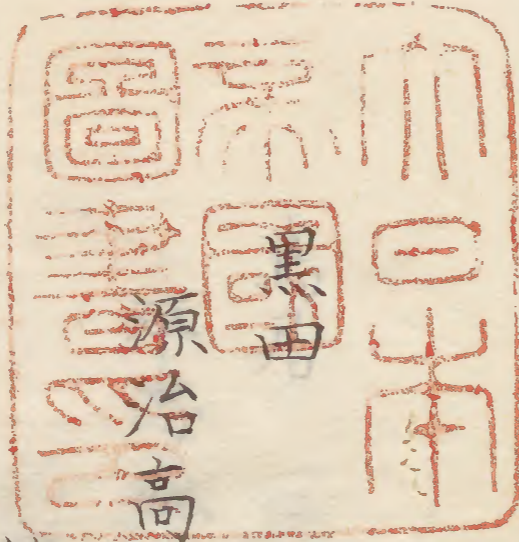 大日本
帝國
圖書印
黒田
源治高